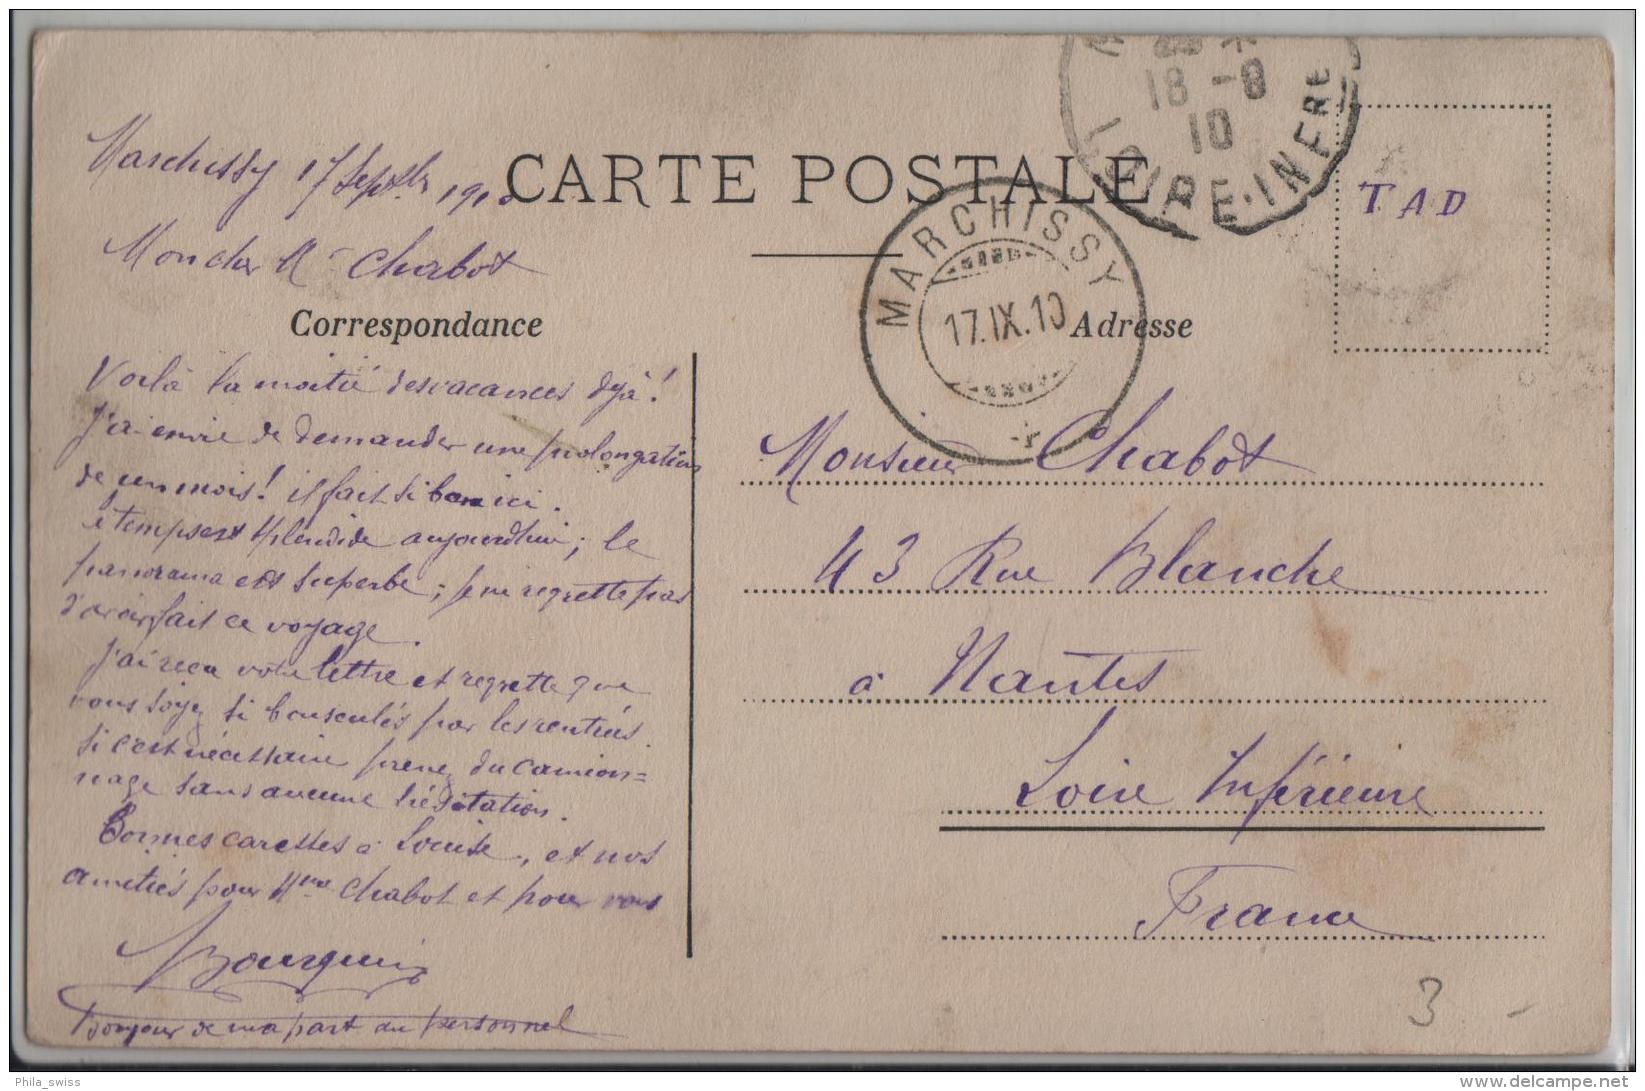 18 - 8
10
LOIRE-INFRE
CARTE POSTALE
TAD
MARCHISSY
17.IX.10
Marchissy 17 Septbr 1910
Mon cher Mr Chabot
Correspondance
Voilà la moitié des vacances déjà!
J'ai envie de demander une prolongation
de un mois! il fait si bon ici.
le temps est splendide aujourd'hui; le
panorama est superbe; je ne regrette pas
d'avoir fait ce voyage.
J'ai reçu votre lettre et regrette que
vous soyez si bousculés par les rentrées.
si c'est nécessaire prenez du camion=
nage sans aucune hésitation.
Bonnes caresses à Louise, et nos
amitiés pour Mme Chabot et pour vous
Bourquin
Bonjour de ma part au personnel
Adresse
Monsieur Chabot
43 Rue Blanche
à Nantes
Loire Inférieure
France
3 -
Phila_swiss
www.delcampe.net